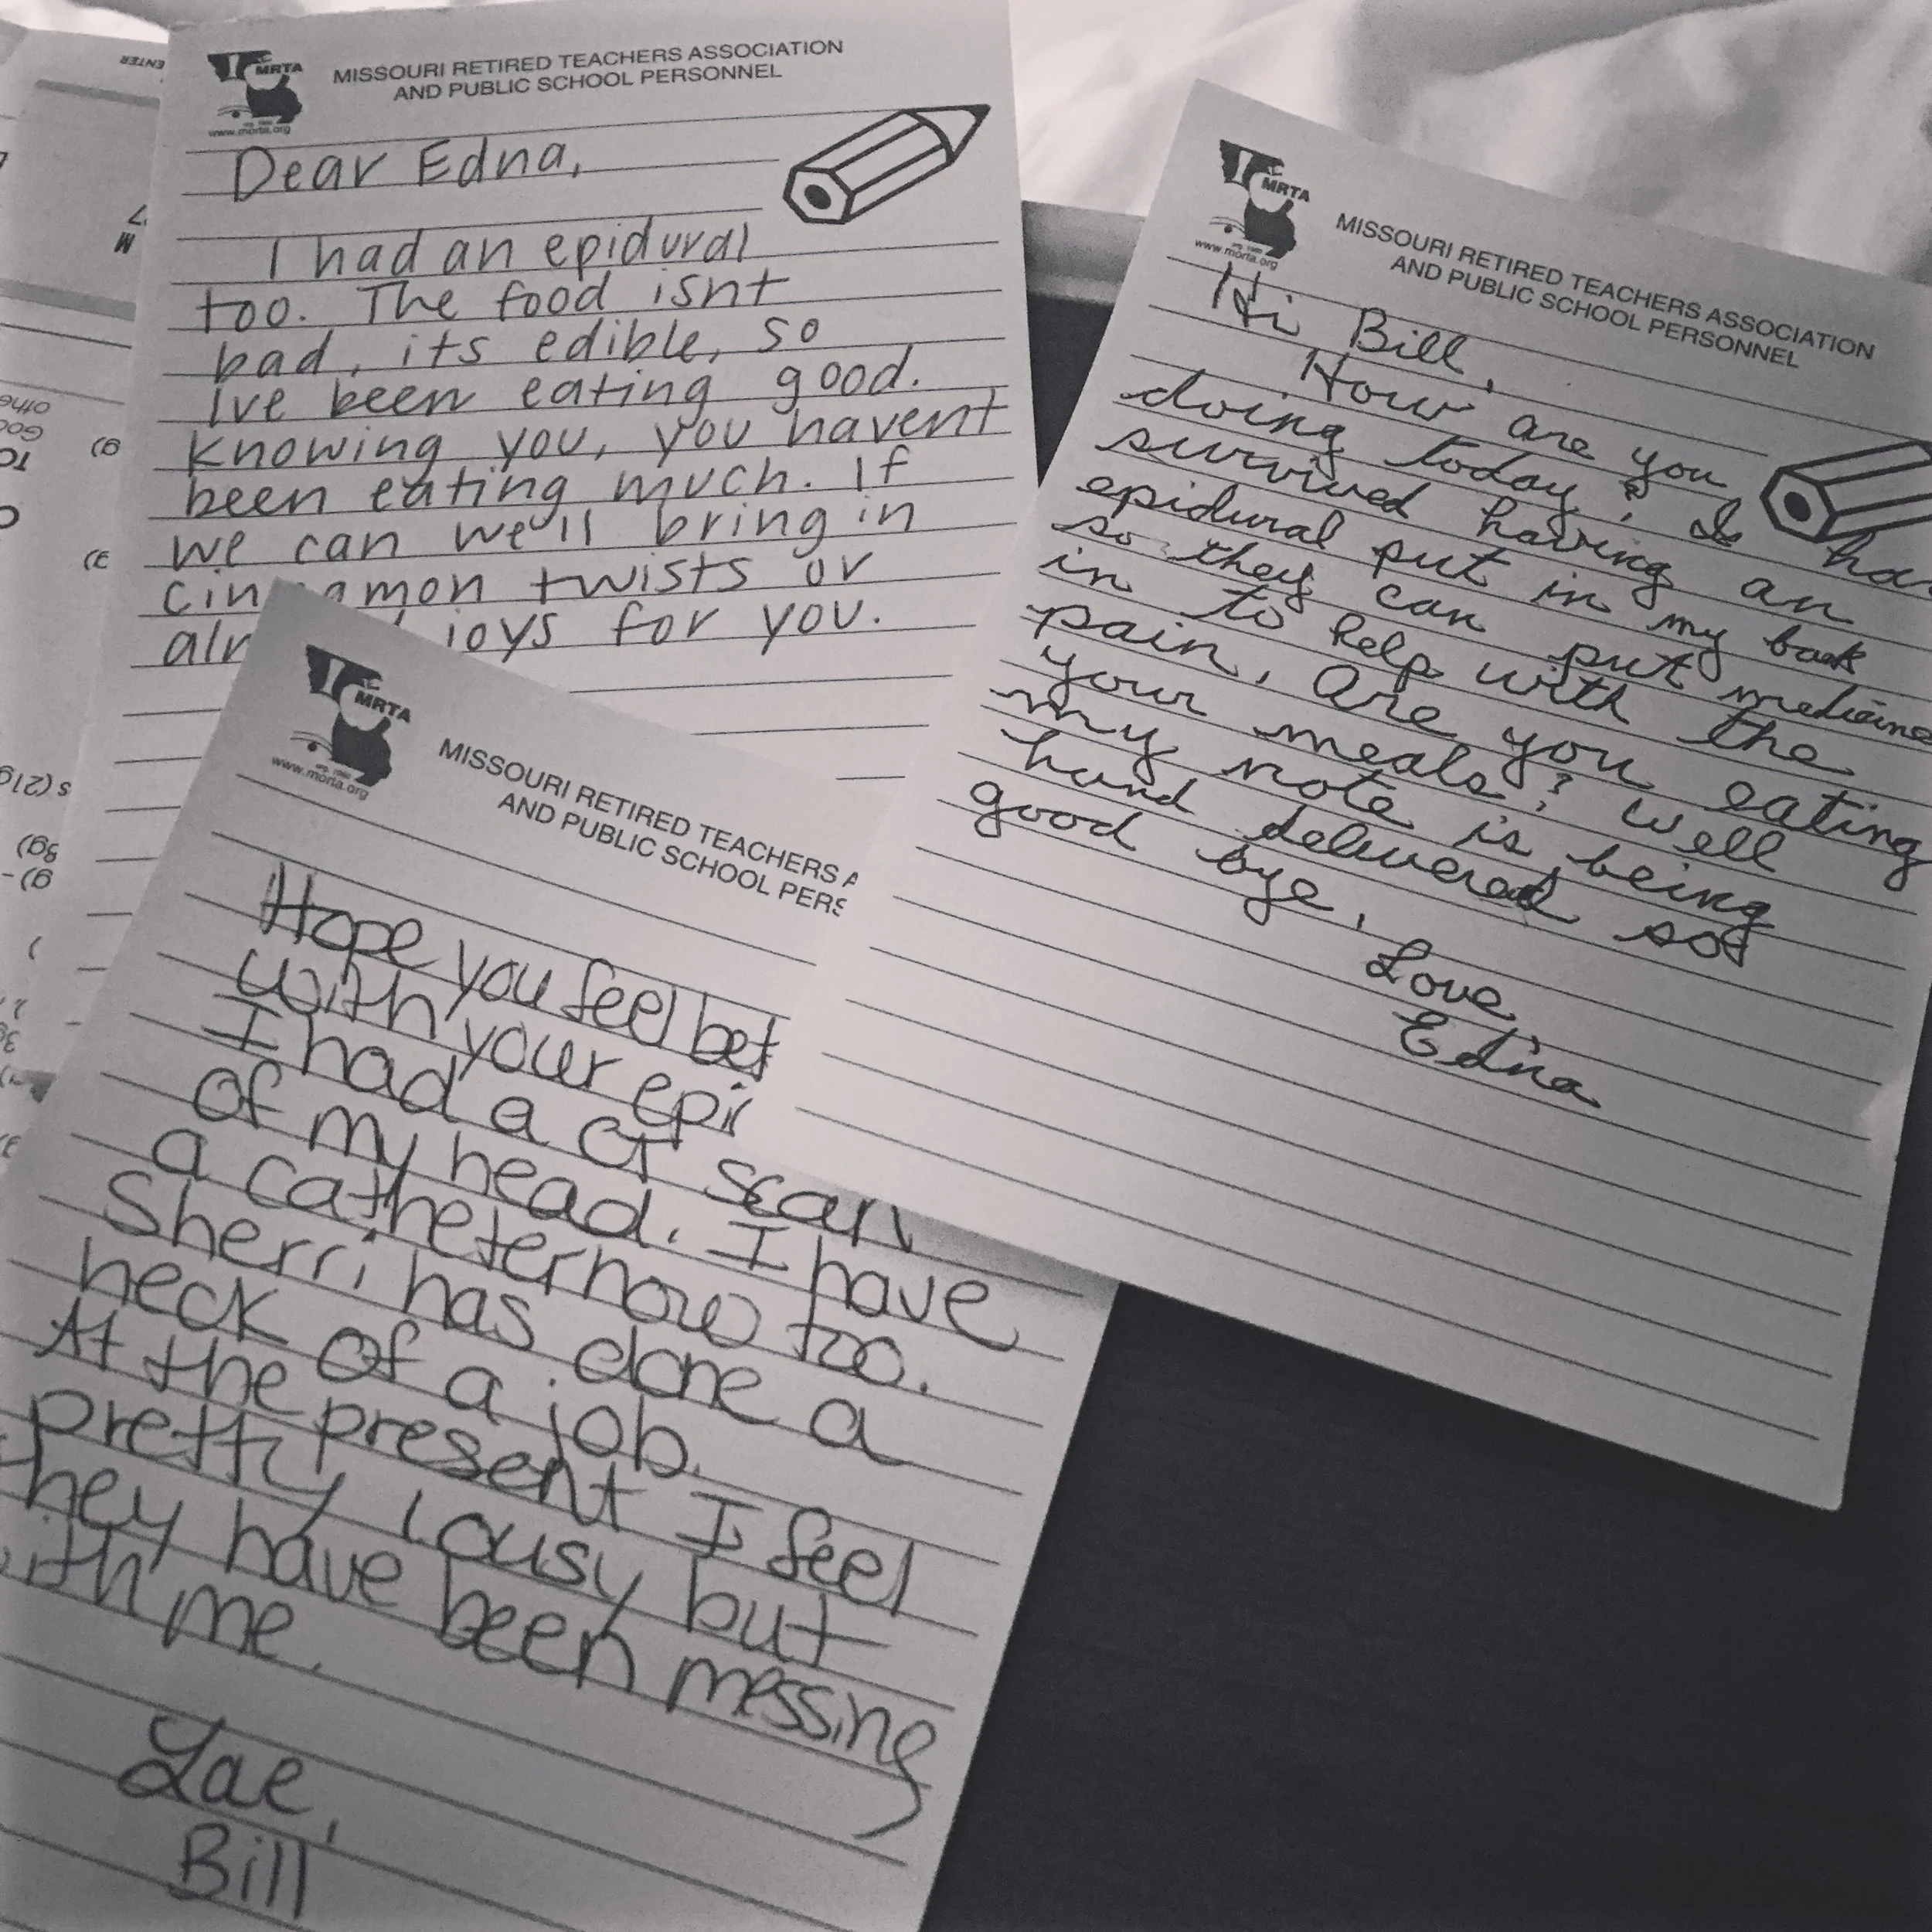 MRTA
MISSOURI RETIRED TEACHERS ASSOCIATION
AND PUBLIC SCHOOL PERSONNEL
www.morta.org
Dear Edna,
I had an epidural
too. The food isnt
bad, its edible, so
Ive been eating good.
Knowing you, you havent
been eating much. If
we can we'll bring in
cin amon twists or
alm joys for you.
MRTA
MISSOURI RETIRED TEACHERS ASSOCIATION
AND PUBLIC SCHOOL PERSONNEL
www.morta.org
Hi Bill,
How are you
doing today? I ha
survived having an
epidural put in my back
so they can put medicine
in to help with the
pain, are you eating
your meals? Well
my note is being
hand delivered so
good bye,
Love,
Edna
MRTA
MISSOURI RETIRED TEACHERS A
AND PUBLIC SCHOOL PERS
www.morta.org
Hope you feel bet
with your epi
I had a CT scan
of my head. I have
a catheter now too.
Sherri has done a
heck of a job.
At the present I feel
pretty lousy but
they have been messing
with me.
Bill
ENTER